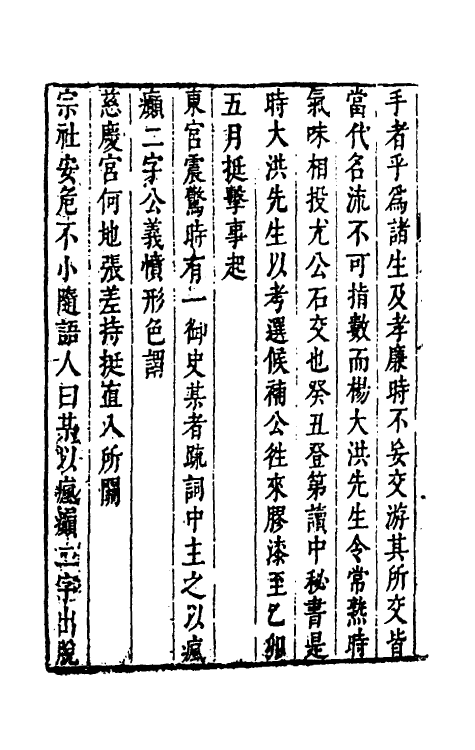 手者乎爲諸生及孝廉時不妄交游其所交皆
當代名流不可指數而楊大洪先生令常熟時
氣味相投尤公石交也癸丑登第讀中秘書是
時大洪先生以考選候補公徃來膠漆至乙卯
五月挺擊事起
東宮震驚時有一御史某者疏詞中主之以瘋
癲二字公義憤形色謂
慈慶宮何地張差持挺直入所關
宗社安危不小隨語人曰某以瘋癲二字出脫